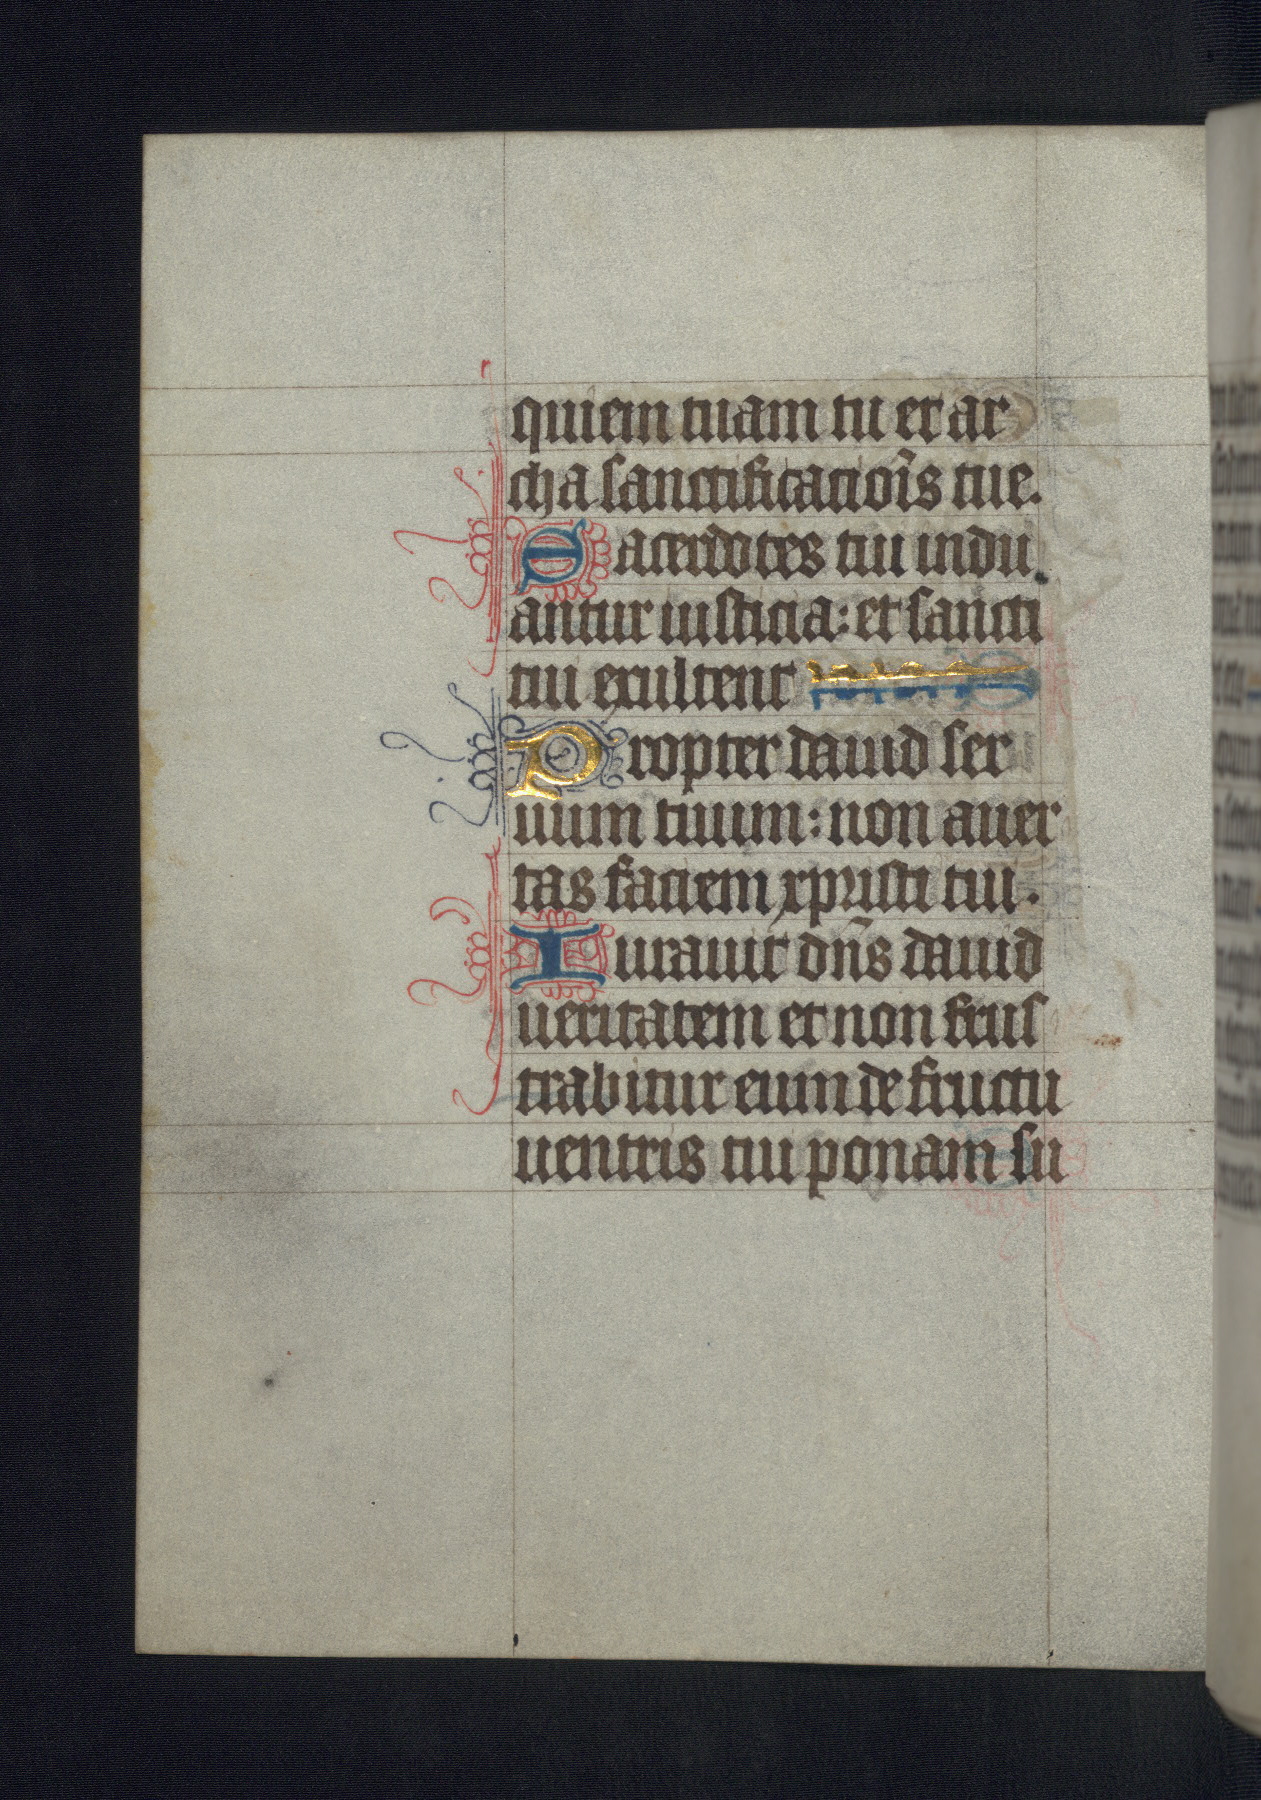 quiem tuam tu et ar
cha sanctificatiōis tue.
Sacerdotes tui indu
antur iusticia: et sancti
tui exultent
Propter dauid ser
uum tuum: non auer
tas faciem xpristi tui.
Iurauit dn̄s dauid
ueritatem et non frus
trabitur eum de fructu
uentris tui ponam su